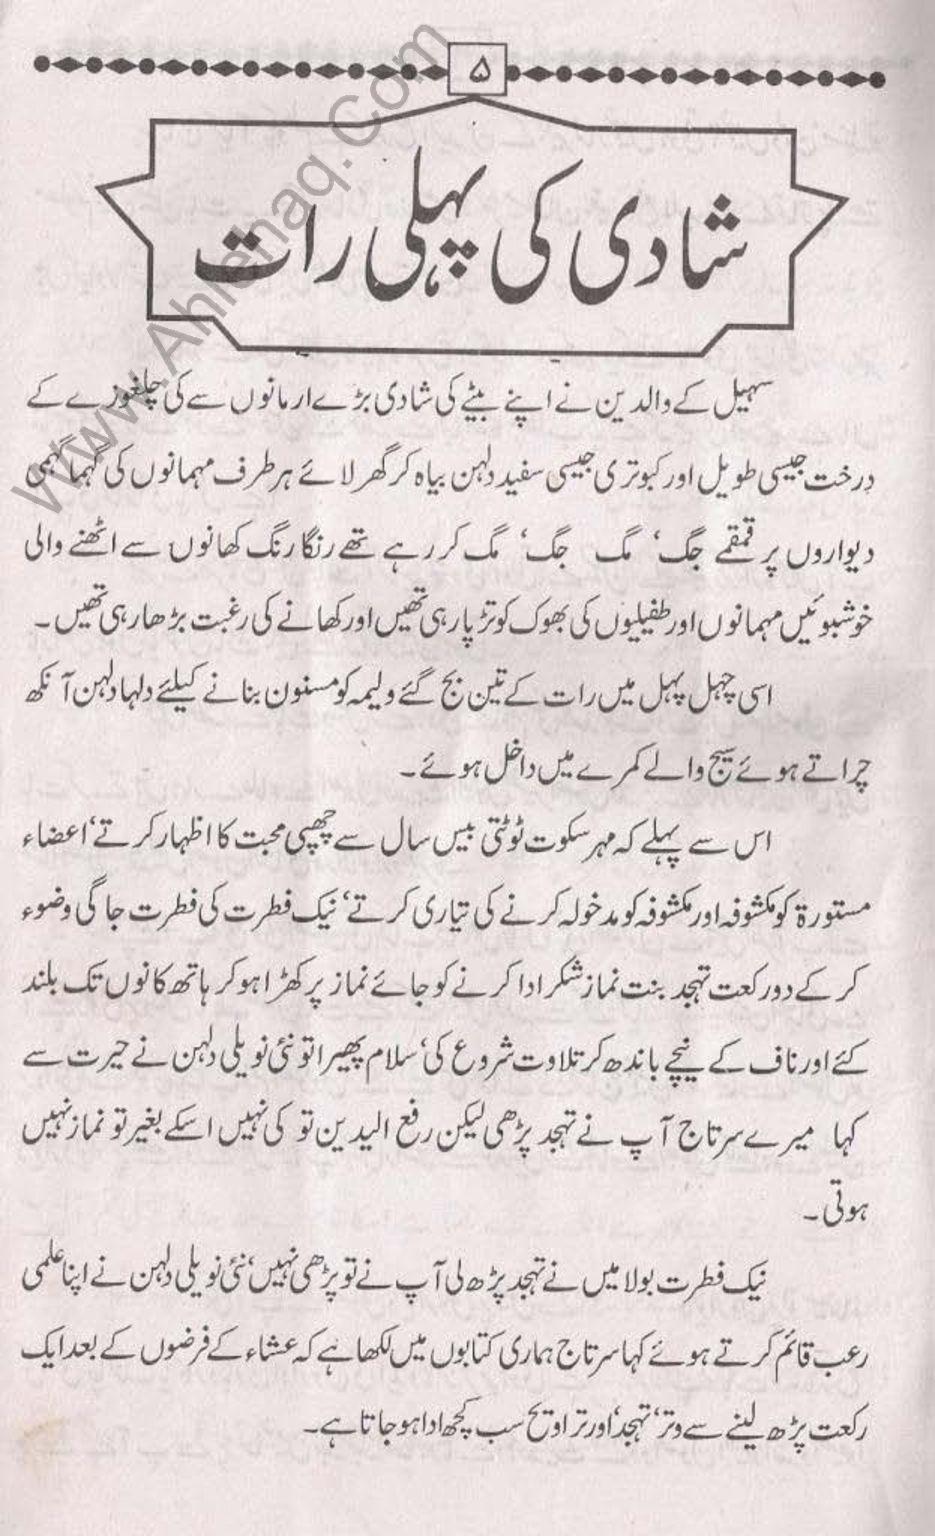 ۵
شادی کی پہلی رات
سہیل کے والدین نے اپنے بیٹے کی شادی بڑے ارمانوں سے کی چلغوزے کے
درخت جیسی طویل اور کبوتری جیسی سفید دلہن بیاہ کر گھر لائے ہر طرف مہمانوں کی گہما گہمی
دیواروں پر قمقمے جگ‘ مگ جگ‘ مگ کر رہے تھے رنگا رنگ کھانوں سے اٹھنے والی
خوشبوئیں مہمانوں اور طفیلیوں کی بھوک کو تڑپا رہی تھیں اور کھانے کی رغبت بڑھا رہی تھیں۔
اسی چہل پہل میں رات کے تین بج گئے ولیمہ کو مسنون بنانے کیلئے دلہا دلہن آنکھ
چراتے ہوئے سیج والے کمرے میں داخل ہوئے۔
اس سے پہلے کہ مہر سکوت ٹوٹتی بیس سال سے چھپی محبت کا اظہار کرتے‘ اعضاء
مستورۃ کو مکشوفہ اور مکشوفہ کو مدخولہ کرنے کی تیاری کرتے‘ نیک فطرت کی فطرت جاگی وضوء
کر کے دو رکعت تہجد بنت نماز شکر ادا کرنے کو جائے نماز پر کھڑا ہو کر ہاتھ کانوں تک بلند
کئے اور ناف کے نیچے باندھ کر تلاوت شروع کی‘ سلام پھیرا تو نئی نویلی دلہن نے حیرت سے
کہا میرے سرتاج آپ نے تہجد پڑھی لیکن رفع الیدین تو کی نہیں اسکے بغیر تو نماز نہیں
ہوتی۔
نیک فطرت بولا میں نے تہجد پڑھ لی آپ نے تو پڑھی نہیں‘ نئی نویلی دلہن نے اپنا علمی
رعب قائم کرتے ہوئے کہا سرتاج ہماری کتابوں میں لکھا ہے کہ عشاء کے فرضوں کے بعد ایک
رکعت پڑھ لینے سے وتر‘ تہجد‘ اور تراویح سب کچھ ادا ہو جاتا ہے۔
www.Ahlehaq.Com